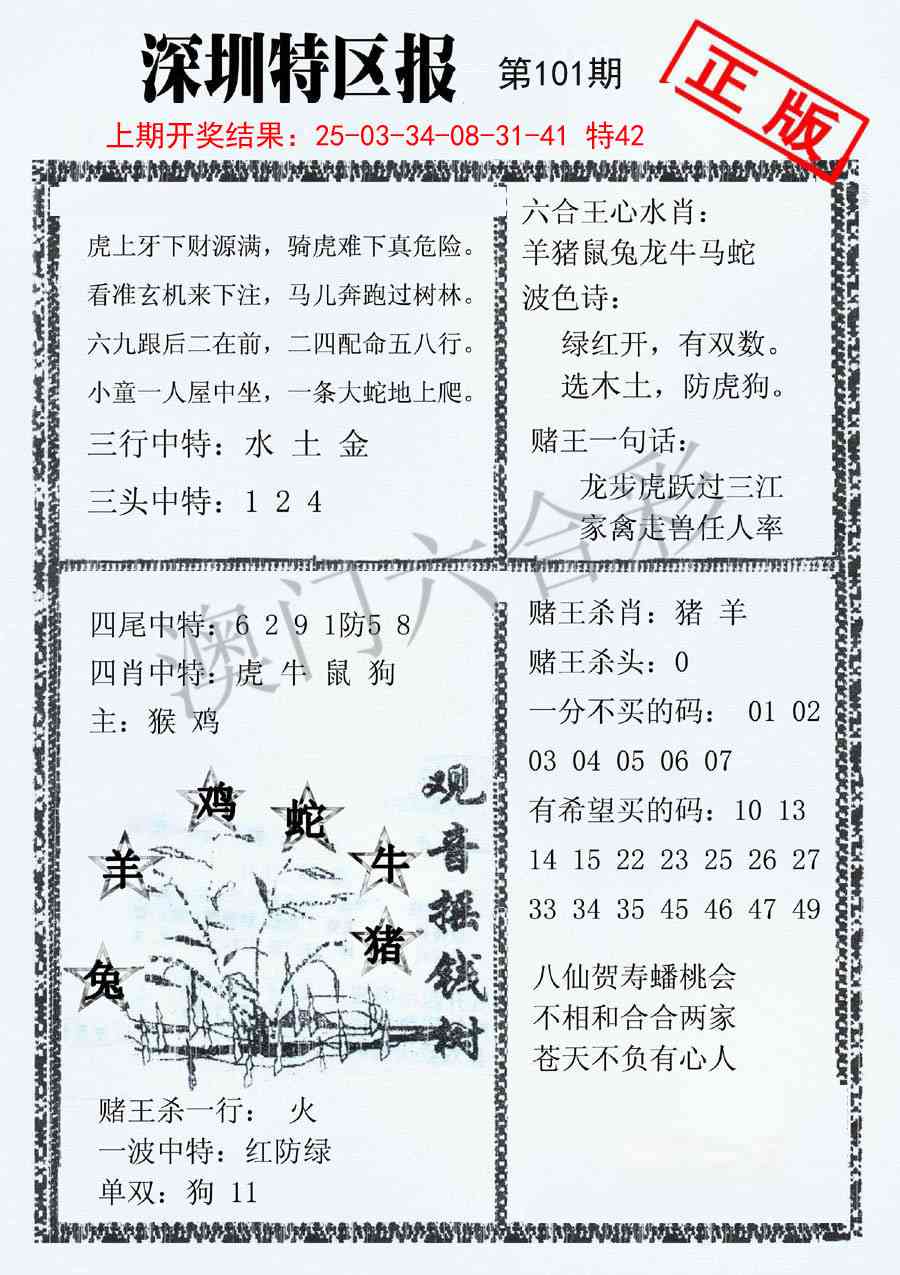 深圳特区报 第101期
正版
上期开奖结果：25-03-34-08-31-41 特42
虎上牙下财源满，骑虎难下真危险。
看准玄机来下注，马儿奔跑过树林。
六九跟后二在前，二四配命五八行。
小童一人屋中坐，一条大蛇地上爬。
三行中特：水 土 金
三头中特：1 2 4
六合王心水肖：
羊猪鼠兔龙牛马蛇
波色诗：
绿红开，有双数。
选木土，防虎狗。
赌王一句话：
龙步虎跃过三江
家禽走兽任人率
澳门六合彩
四尾中特：6 2 9 1防5 8
四肖中特：虎 牛 鼠 狗
主：猴 鸡
鸡
蛇
羊
牛
猪
兔
观音摇钱树
赌王杀一行： 火
一波中特：红防绿
单双：狗 11
赌王杀肖：猪 羊
赌王杀头：0
一分不买的码： 01 02
03 04 05 06 07
有希望买的码：10 13
14 15 22 23 25 26 27
33 34 35 45 46 47 49
八仙贺寿蟠桃会
不相和合合两家
苍天不负有心人